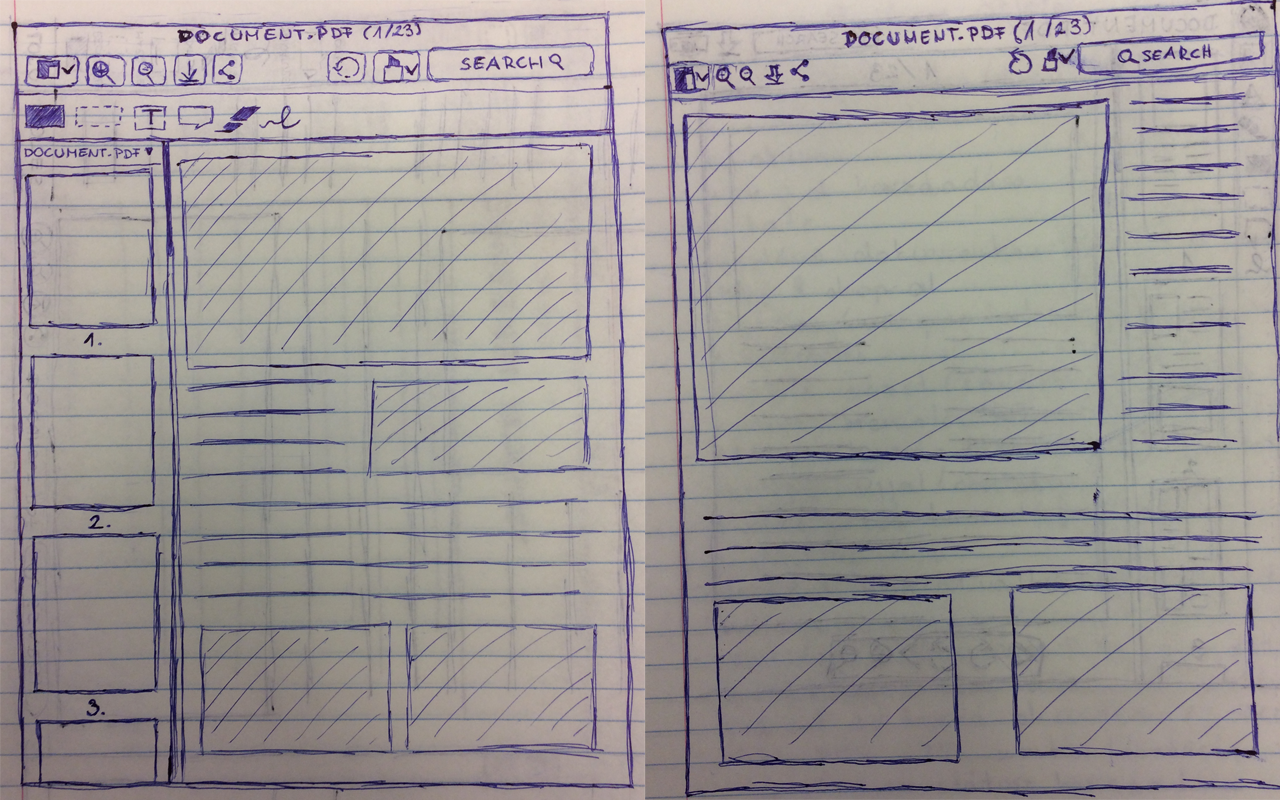 DOCUMENT.PDF (1/23)
SEARCH
T
DOCUMENT.PDF
1.
2.
3.
DOCUMENT.PDF (1/23)
SEARCH